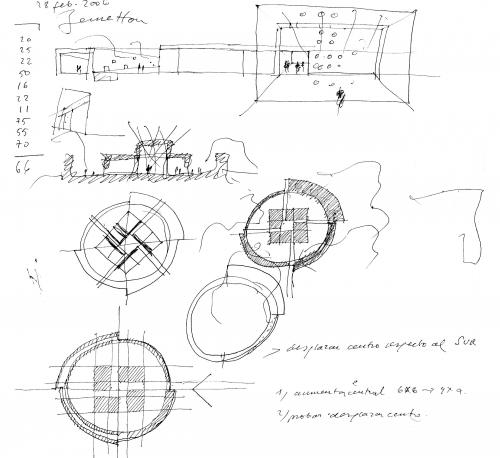 28 feb. 2006
20
25
22
50
16
22
11
75
55
70
66
desplazar centro respecto al SUR
1) aumentar central 6x6 → 9x9.
2) probar desplazar centro.